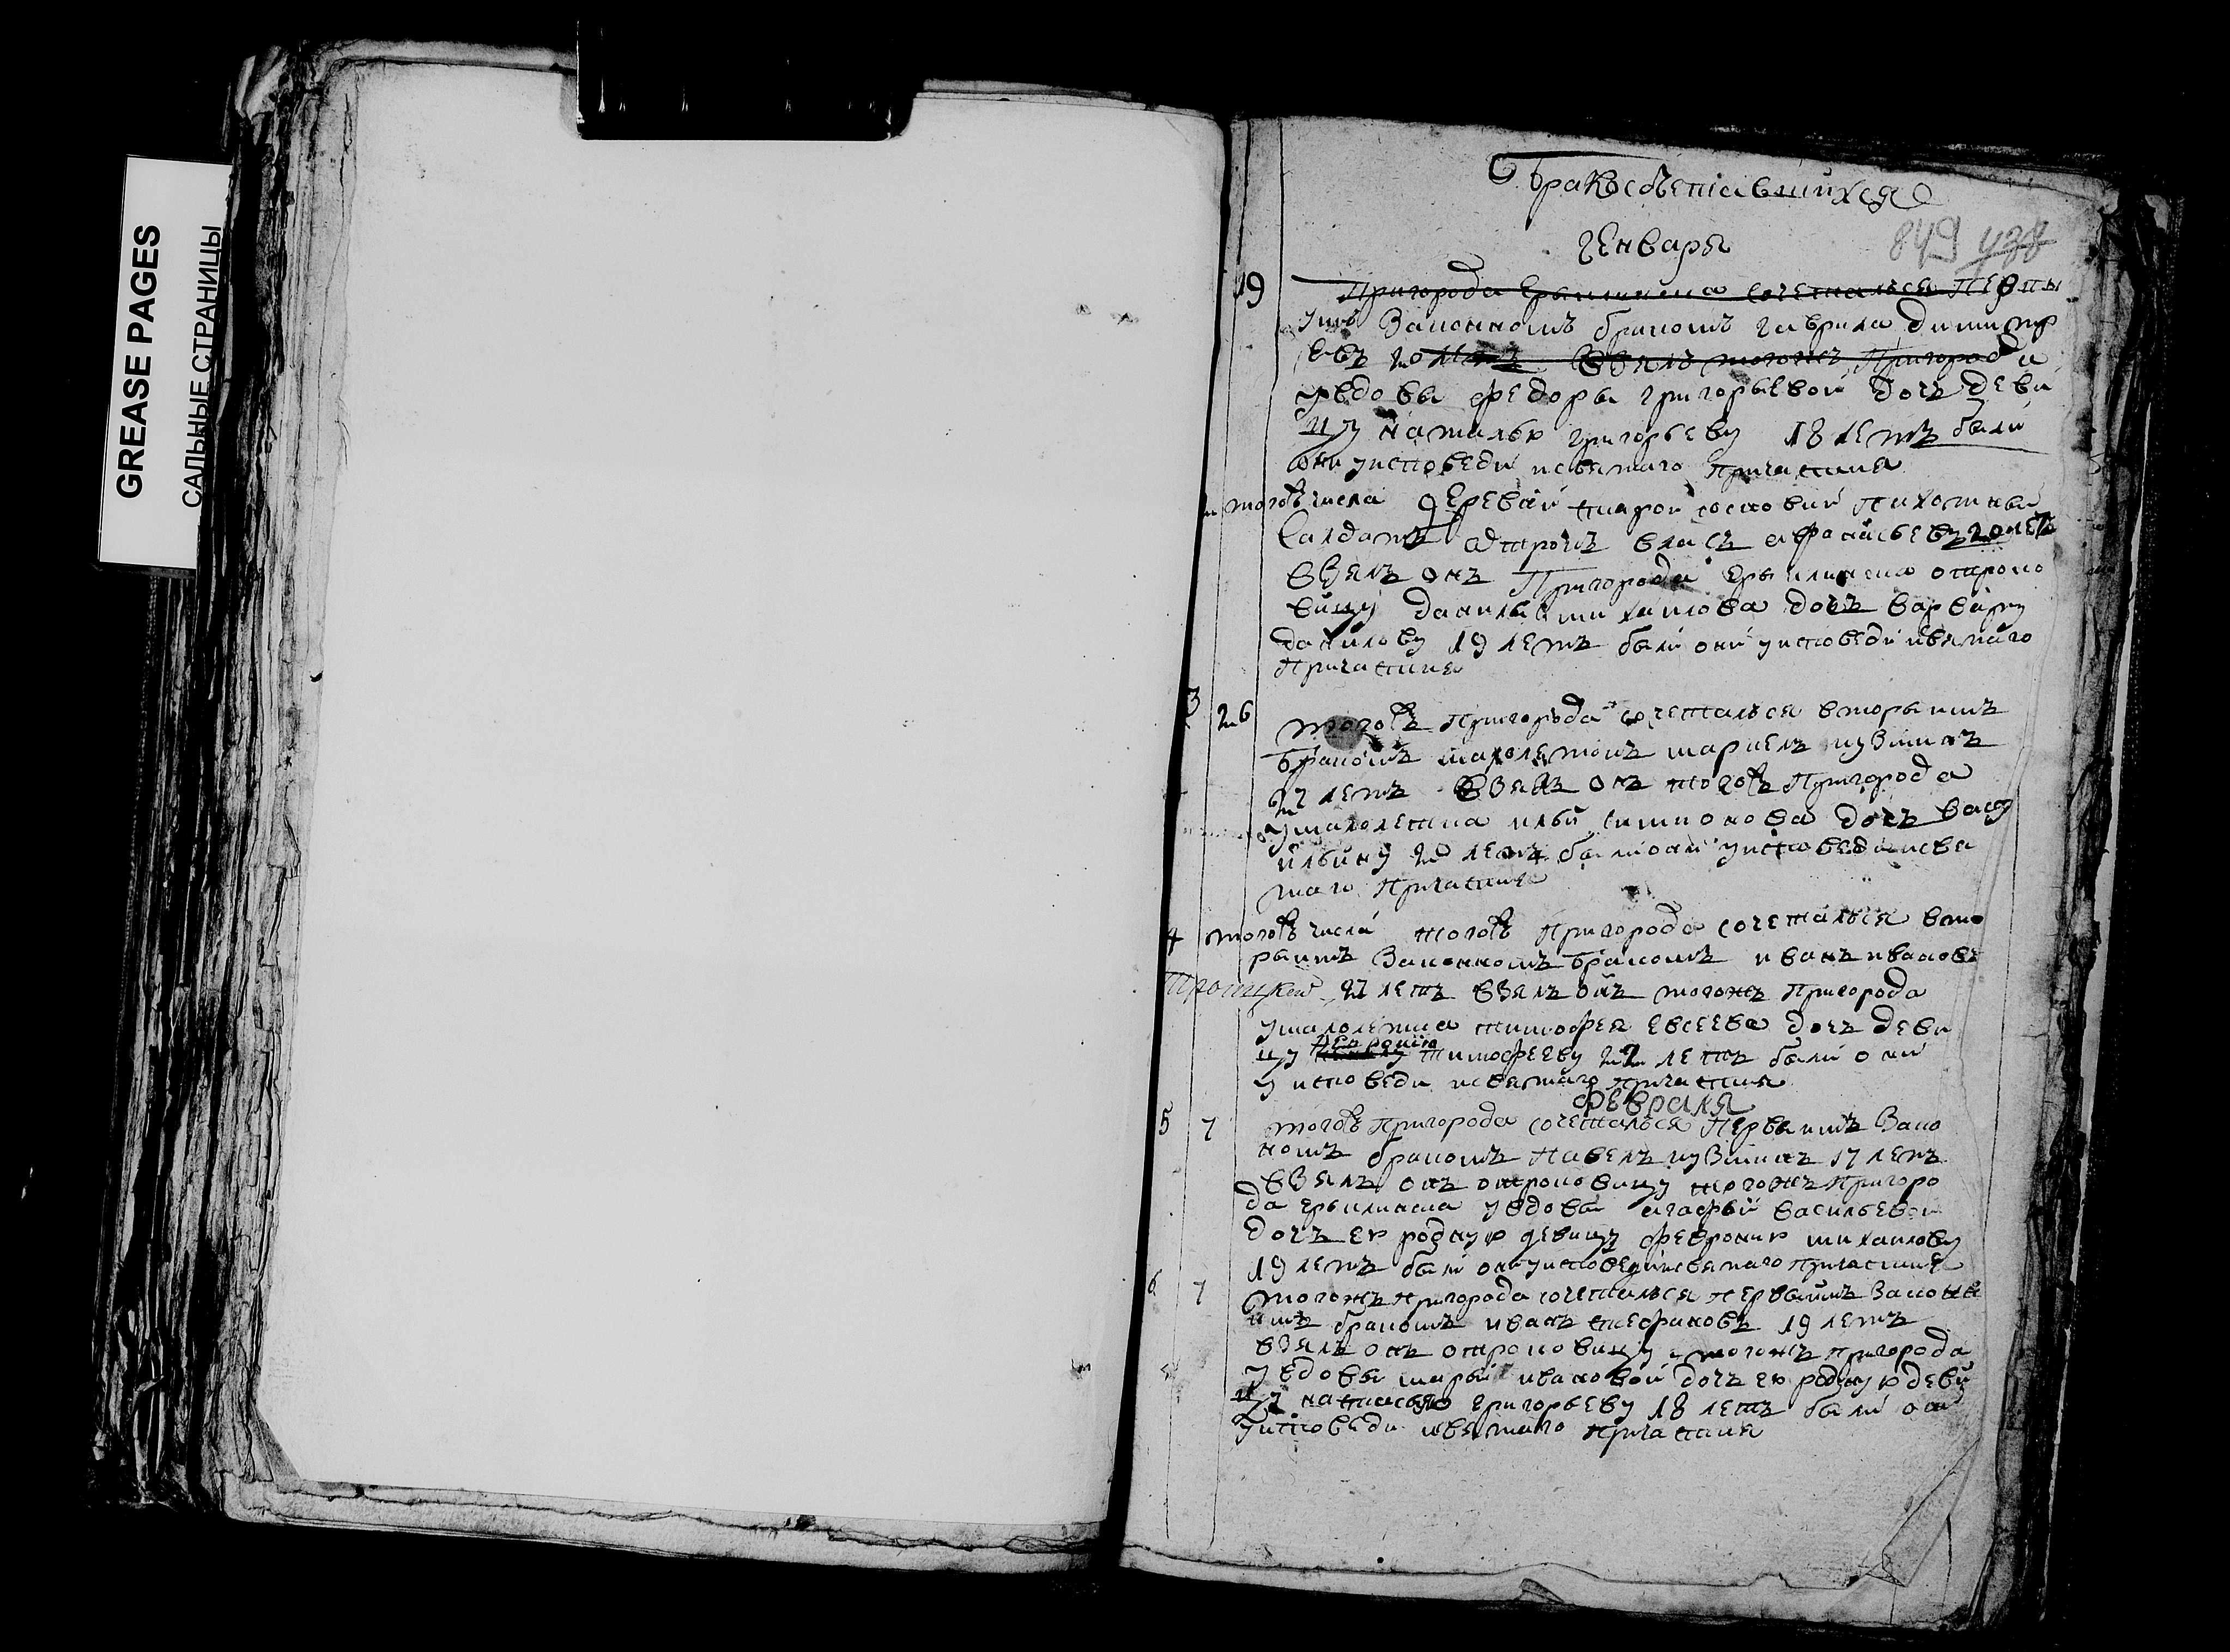 GREASE PAGES
САЛЬНЫЕ СТРАНИЦЫ
О бракосочетавшихся
генваря
849 438
19 Пригорода Ерыклинска сочетался первы
имъ законномъ бракомъ гаврила димитр
евъ 20 летъ взялъ тогожъ Пригорода
у вдовы федоры григорьевой дочь деви
цу наталью григорьеву 18 летъ были
они у исповеди и святаго причастия
тогожъ числа деревни старой пахотный
салдатъ отрокъ власъ афанасьевъ 20 летъ
взялъ онъ Пригорода Ерыклинска отроко
вицу данилы михаилова дочь варвару
данилову 19 летъ были они у исповеди и святаго
причастия
3 26 тогожъ пригорода сочетался вторымъ
бракомъ малолетокъ маркелъ кузминъ
27 летъ взялъ онъ тогожъ пригорода
у малолетка ильи симионова дочь
ильину 20 летъ были они у исповеди и свя
таго причастия
4 тогожъ числа тогожъ пригорода сочетался вто
рымъ законномъ бракомъ иванъ ивановъ
Троицкой 27 летъ взялъ онъ тогожъ пригорода
у малолетка тимофея евсеева дочь деви
цу тимофееву 22 летъ были они
у исповеди и святаго причастия
февраля
5 7 тогожъ пригорода сочетался первымъ зако
номъ бракомъ павелъ кузминъ 17 летъ
взялъ онъ отроковицу тогожъ пригоро
да ерыклинска у вдовы агафьи васильевой
дочь ея родную девицу февронию михаилову
19 летъ были они у исповеди и святаго причастия
6 7 тогожъ пригорода сочетался первымъ законы
имъ бракомъ иванъ стефановъ 19 летъ
взялъ онъ отроковицу тогожъ пригорода
у вдовы марьи ивановой дочь ея родную деви
цу настасью григорьеву 18 летъ были они
у исповеди и святаго причастия